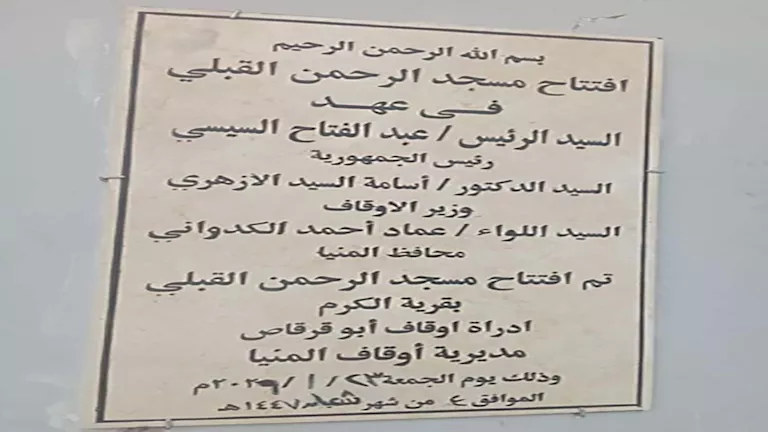 بسم الله الرحمن الرحيم
افتتاح مسجد الرحمن القبلي
فى عهد
السيد الرئيس / عبد الفتاح السيسي
رئيس الجمهورية
السيد الدكتور / أسامة السيد الازهري
وزير الاوقاف
السيد اللواء / عماد أحمد الكدواني
محافظ المنيا
تم افتتاح مسجد الرحمن القبلي
بقرية الكرم
ادراة اوقاف أبو قرقاص
مديرية أوقاف المنيا
وذلك يوم الجمعة ٢٣ / ١ / ٢٠٢٦م
الموافق ٤ من شهر شعبان ١٤٤٧هـ